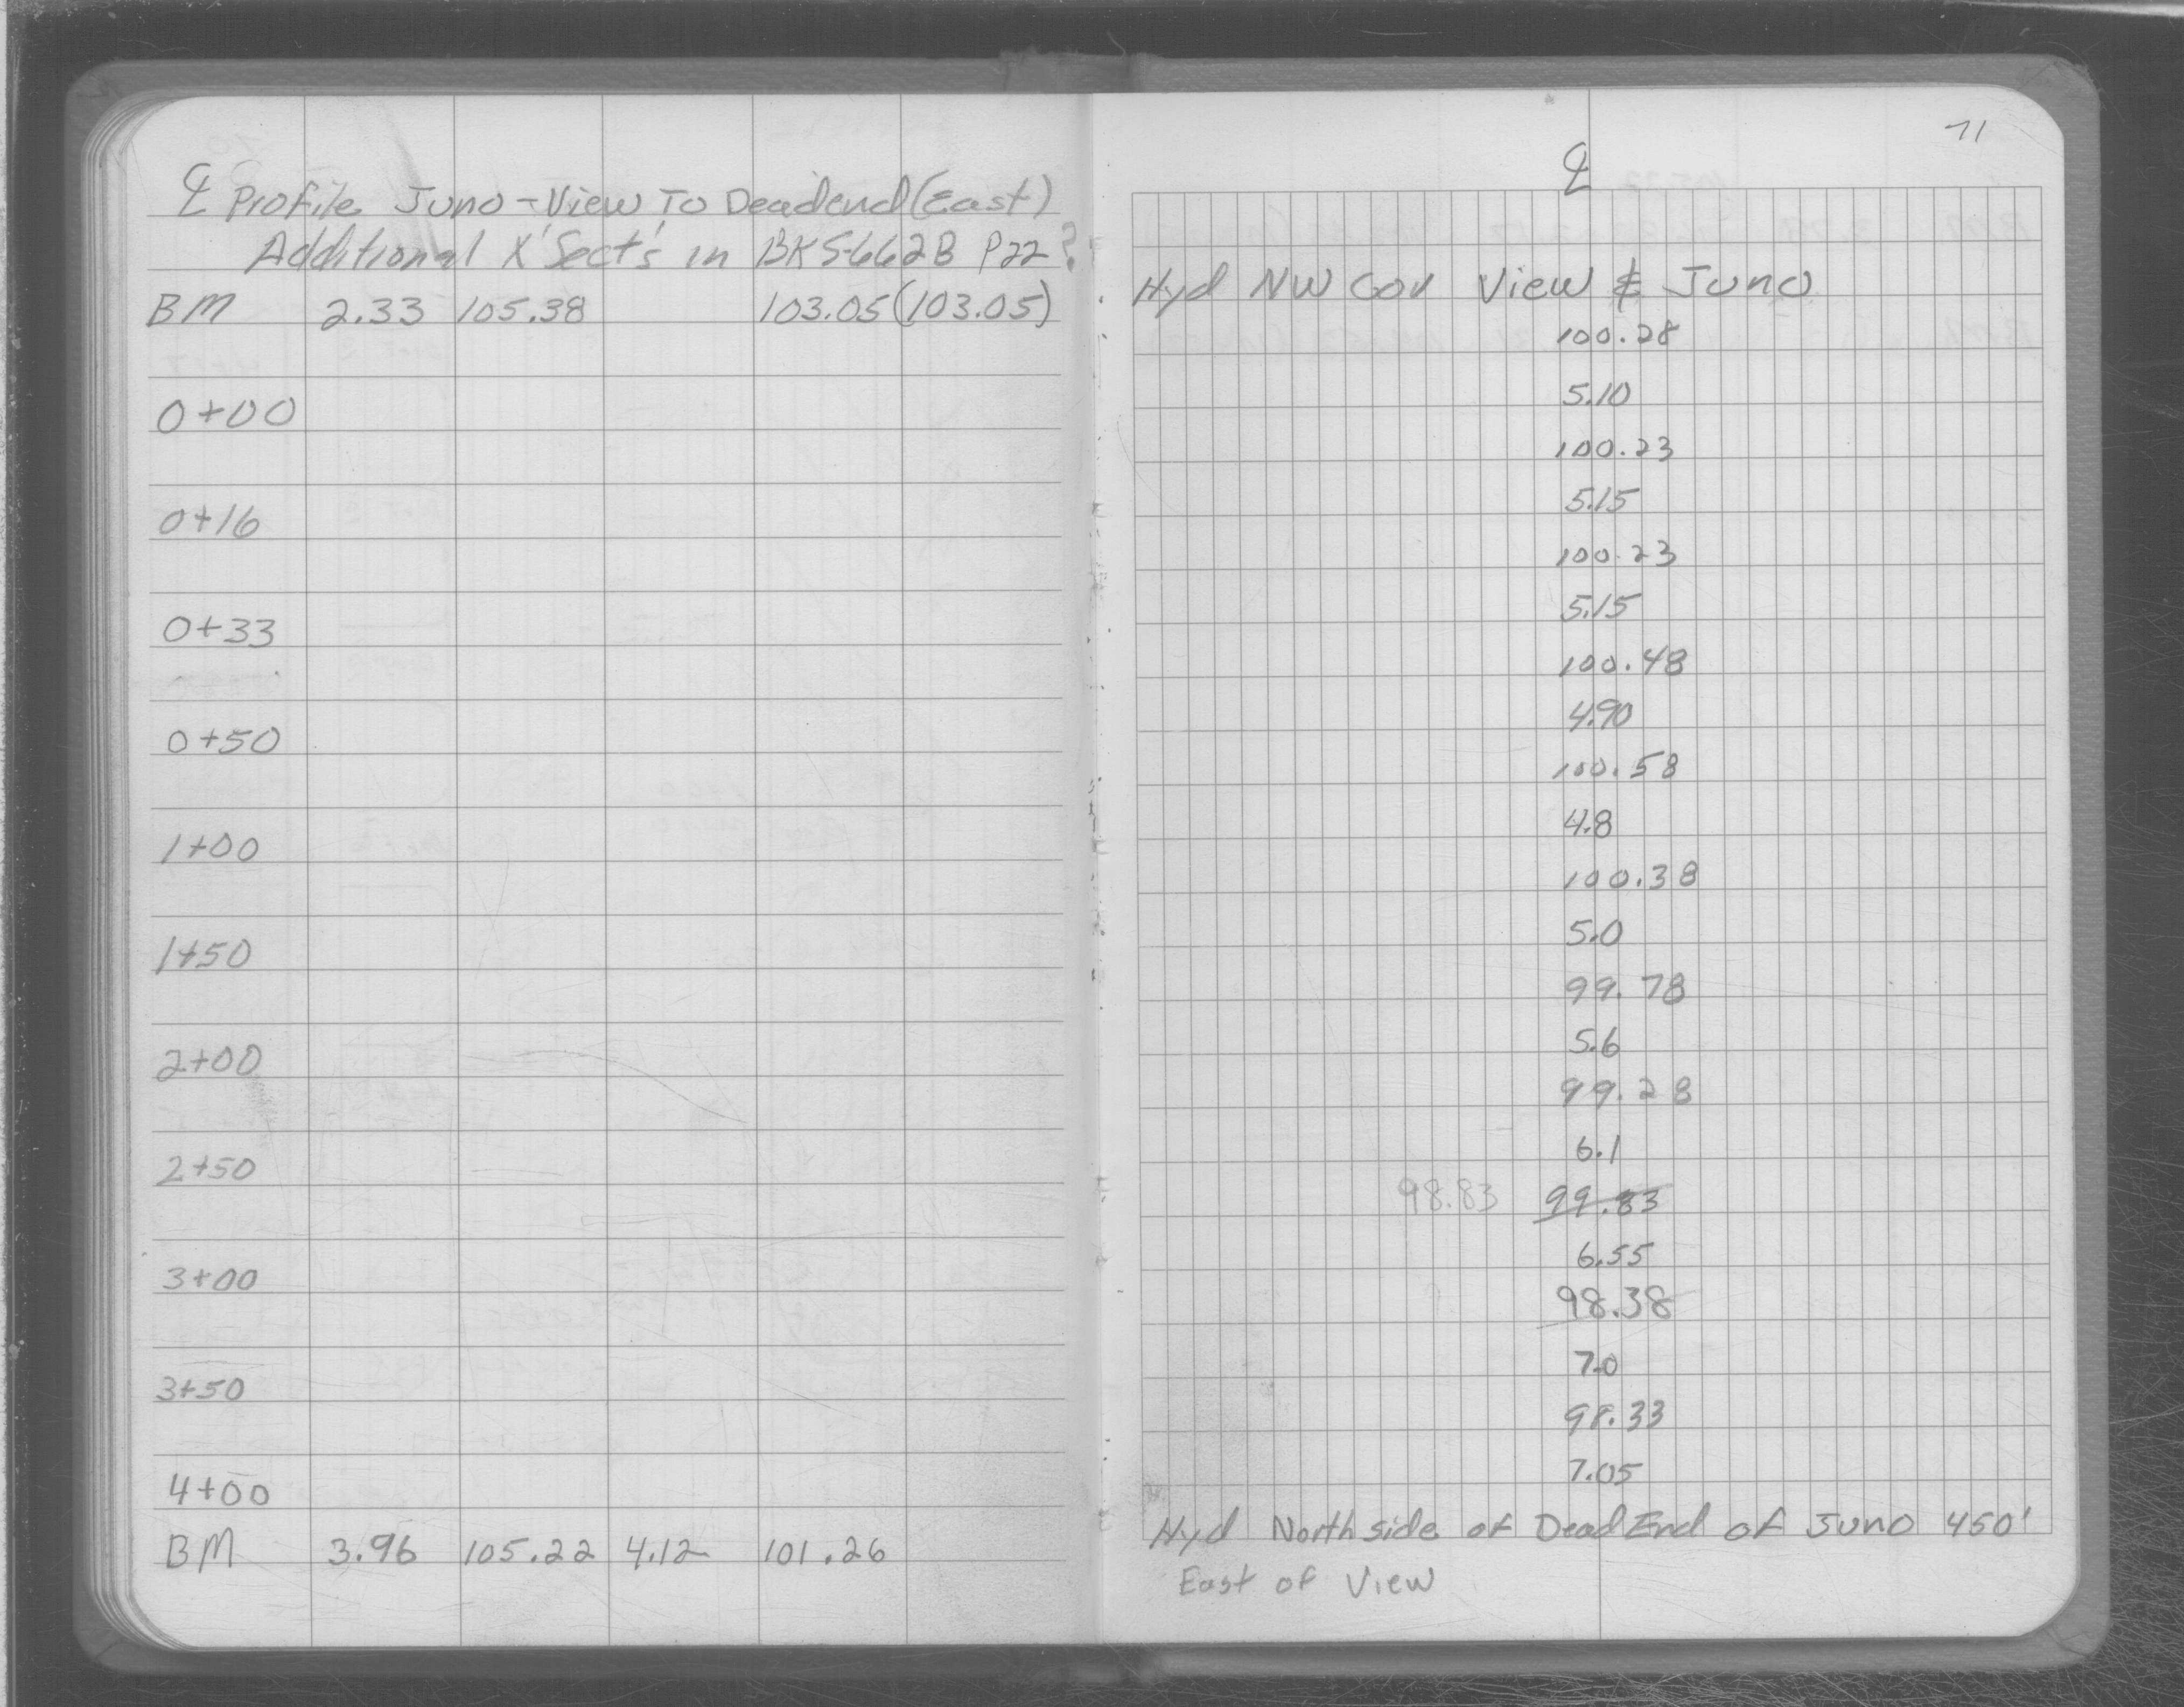 ℄ Profile Juno - View To Deadend (East)
Additional X'Sect's in BK 5662B P22 ?
BM 2.33 105.38 103.05 (103.05)
0+00
0+16
0+33
0+50
1+00
1+50
2+00
2+50
3+00
3+50
4+00
BM 3.96 105.22 4.12 101.26
71
℄
Hyd NW Cor View & Juno
100.28
5.10
100.23
5.15
100.23
5.15
100.48
4.90
100.58
4.8
100.38
5.0
99.78
5.6
99.28
6.1
98.83 99.83
6.55
98.38
7.0
98.33
7.05
Hyd North side of Dead End of Juno 450'
East of View